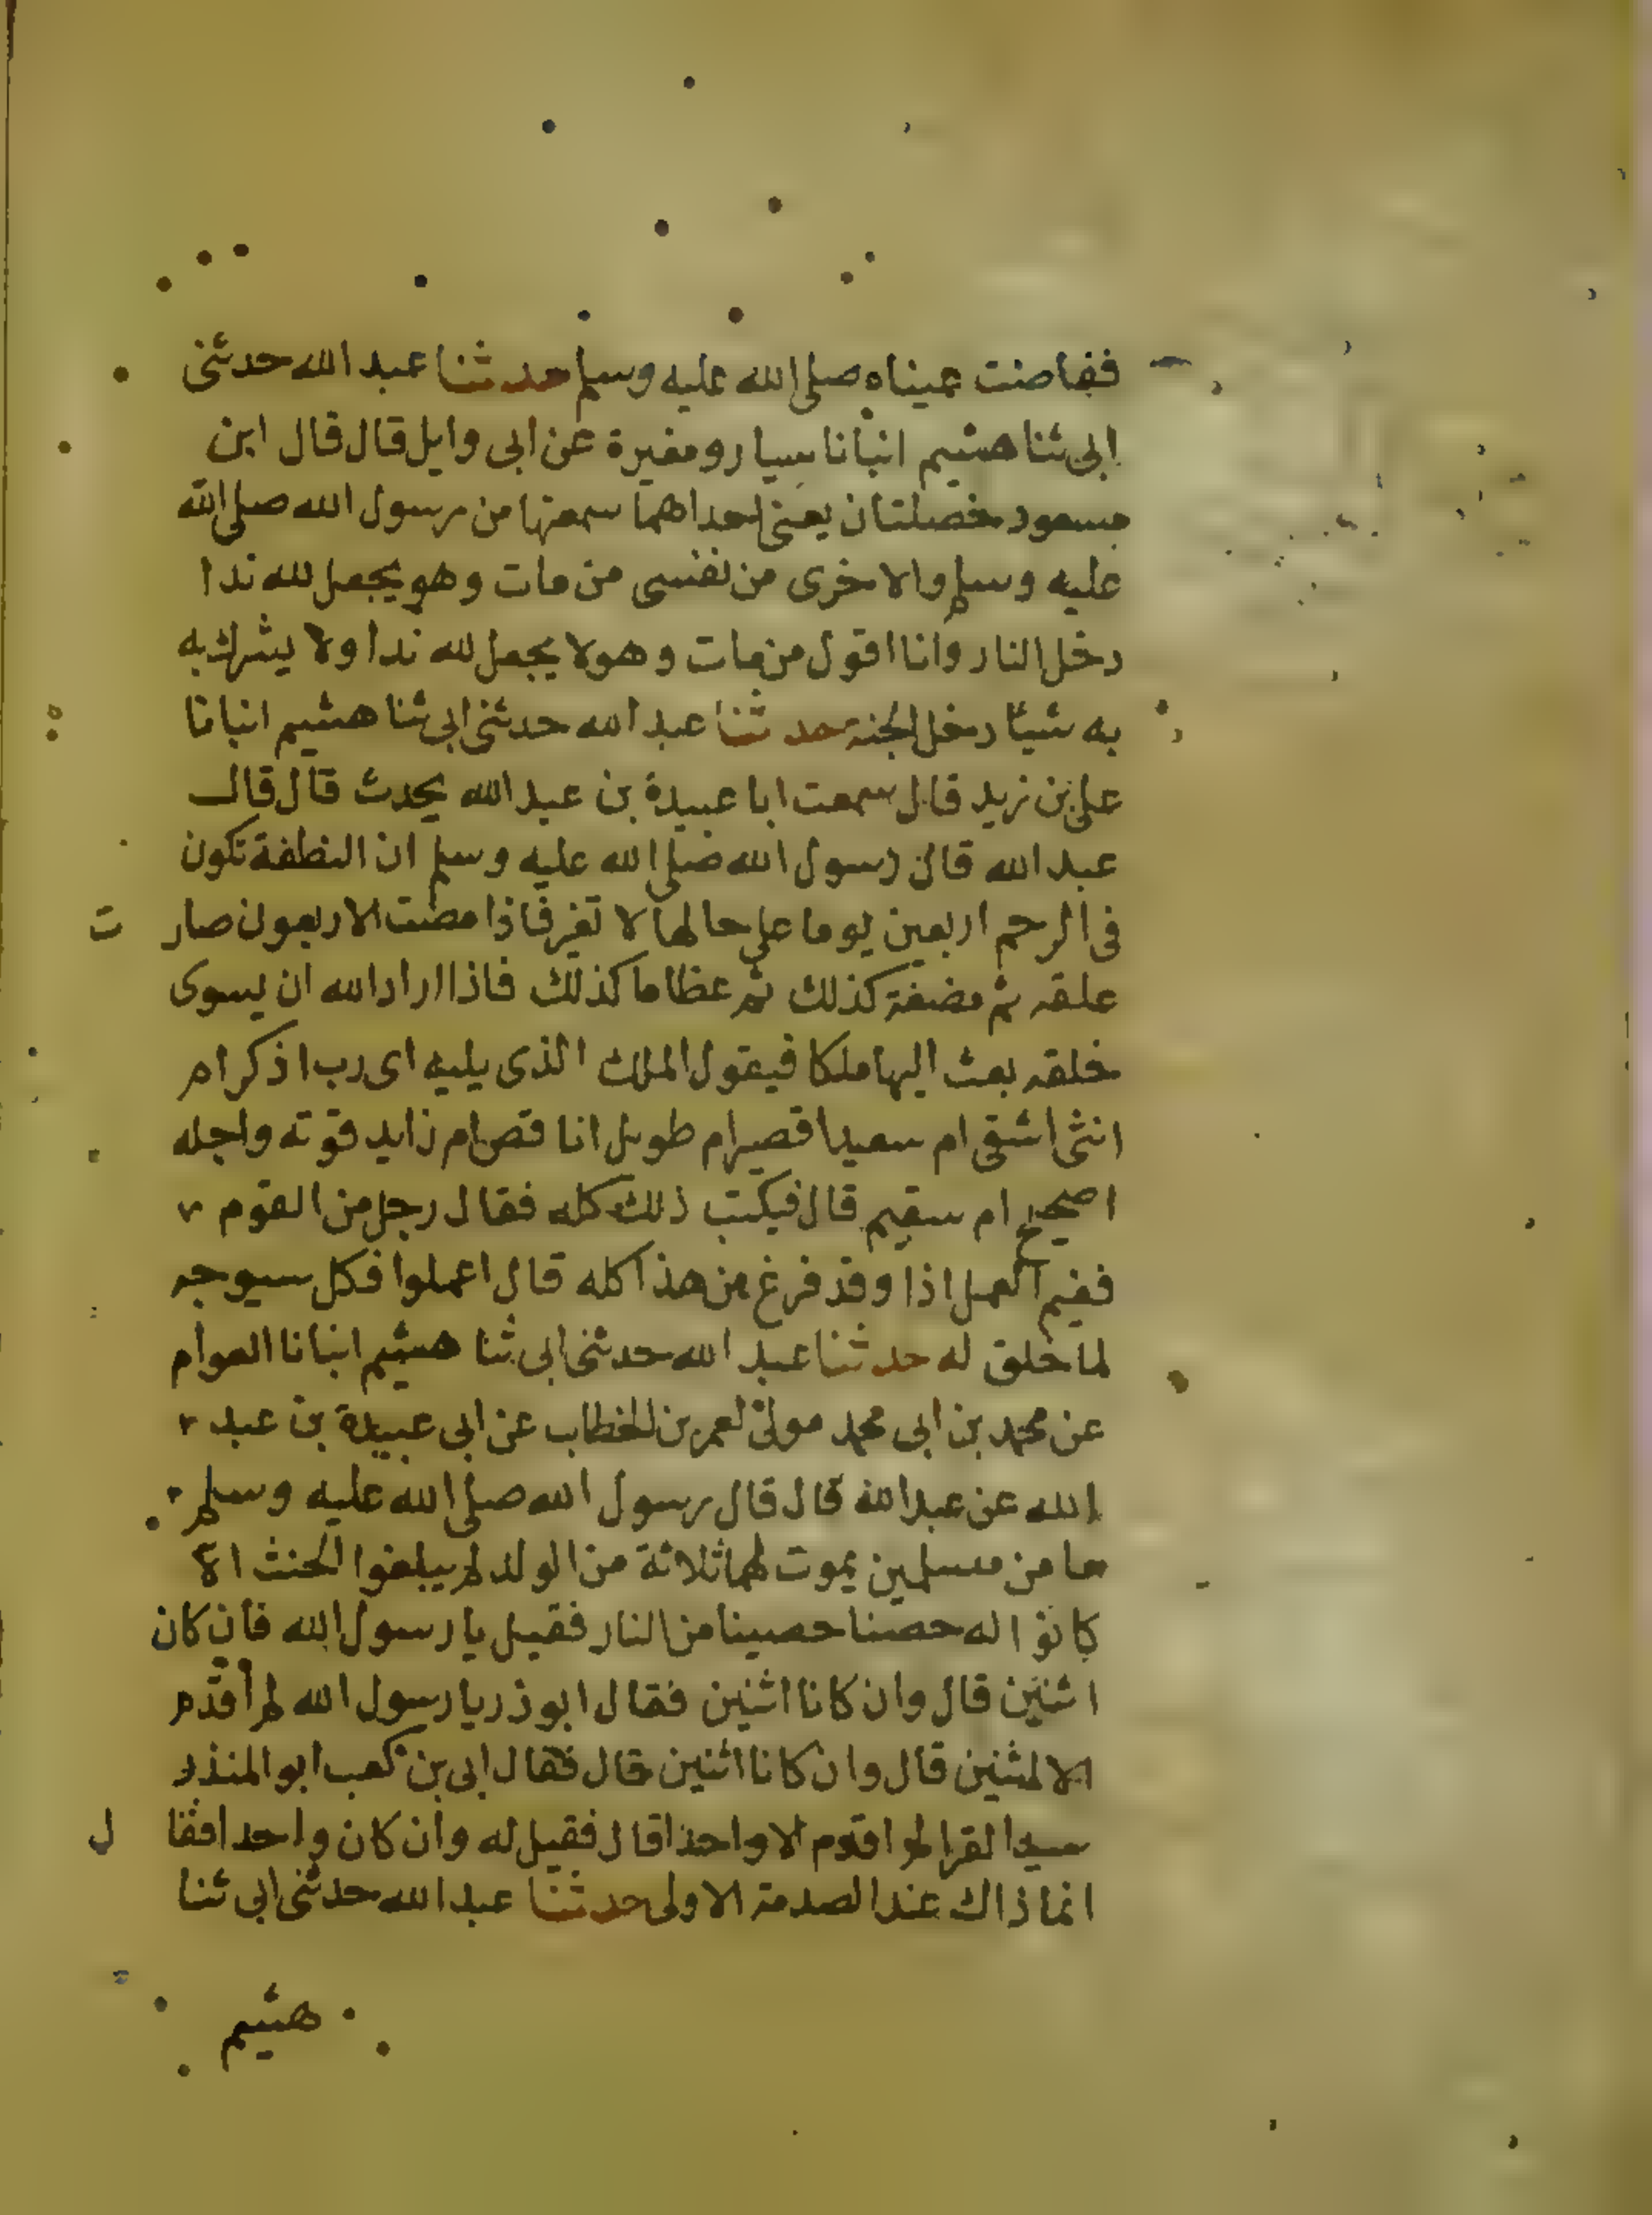 ففاضت عيناه صلى الله عليه وسلم حدثنا عبد الله حدثنى
ابى ثنا هشيم انبانا سيار ومغيرة عن ابى وايل قال قال ابن
مسعود خصلتان يعنى احداهما سمعتها من رسول الله صلى الله
عليه وسلم والاخرى من نفسى من مات وهو يجعل لله ندا
دخل النار وانا اقول من مات وهو لا يجعل لله ندا ولا يشرك به
به شيئا دخل الجنة حدثنا عبد الله حدثنى ابى ثنا هشيم انبانا
على بن زيد قال سمعت ابا عبيدة بن عبد الله يحدث قال قال
عبد الله قال رسول الله صلى الله عليه وسلم ان النطفة تكون
فى الرحم اربعين يوما على حالها لا تغير فاذا مضت الاربعون صار ت
علقه ثم مضغة كذلك ثم عظاما كذلك فاذا اراد الله ان يسوى
خلقه بعث اليها ملكا فيقول الملك الذى يليه اى رب اذكر ام
انثى اشقى ام سعيد اقصير ام طويل اناقص ام زايد قوته واجله
اصحيح ام سقيم قال فيكتب ذلك كله فقال رجل من القوم
ففيم العمل اذا وقد فرغ من هذا كله قال اعملوا فكل سيوجه
لما خلق له حدثنا عبد الله حدثنى ابى ثنا هشيم انبانا العوام
عن محمد بن ابى محمد مولى لعمر بن الخطاب عن ابى عبيدة بن عبد
الله عن عبد الله قال قال رسول الله صلى الله عليه وسلم
ما من مسلمين يموت لهما ثلاثة من الولد لم يبلغوا الحنث الا
كانوا له حصنا حصينا من النار فقيل يا رسول الله فان كان
اثنين قال وان كانا اثنين فقال ابو ذر يا رسول الله لم أقدم
الا اثنين قال وان كانا اثنين قال فقال ابى بن كعب ابو المنذر
سيد القرا لم اقدم الا واحدا قال فقيل له وان كان واحدا فقا ل
انما ذاك عند الصدمة الاولى حدثنا عبد الله حدثنى ابى ثنا
هشيم